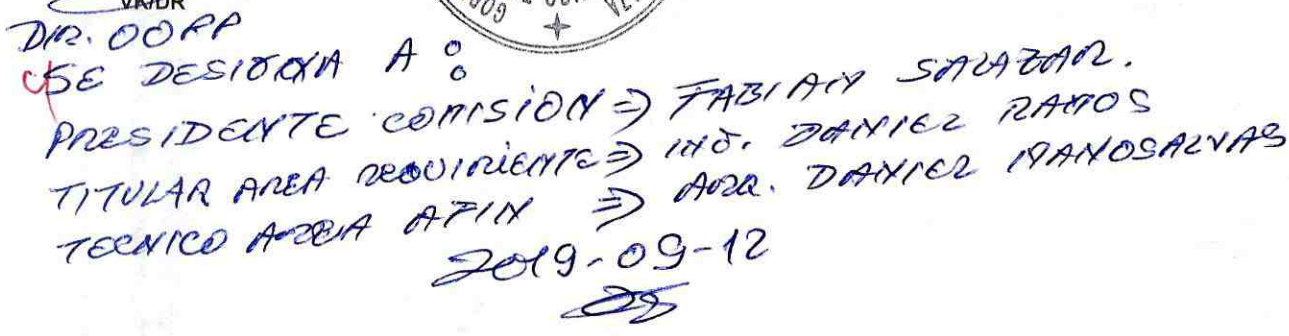 VR/DR
DIR. OOPP
SE DESIGNA A:
PRESIDENTE COMISION => FABIAN SALAZAR.
TITULAR AREA REQUIRIENTE => ING. DANIEL RAMOS
TECNICO AREA AFIN => ARQ. DANIEL MANOSALVAS
2019-09-12